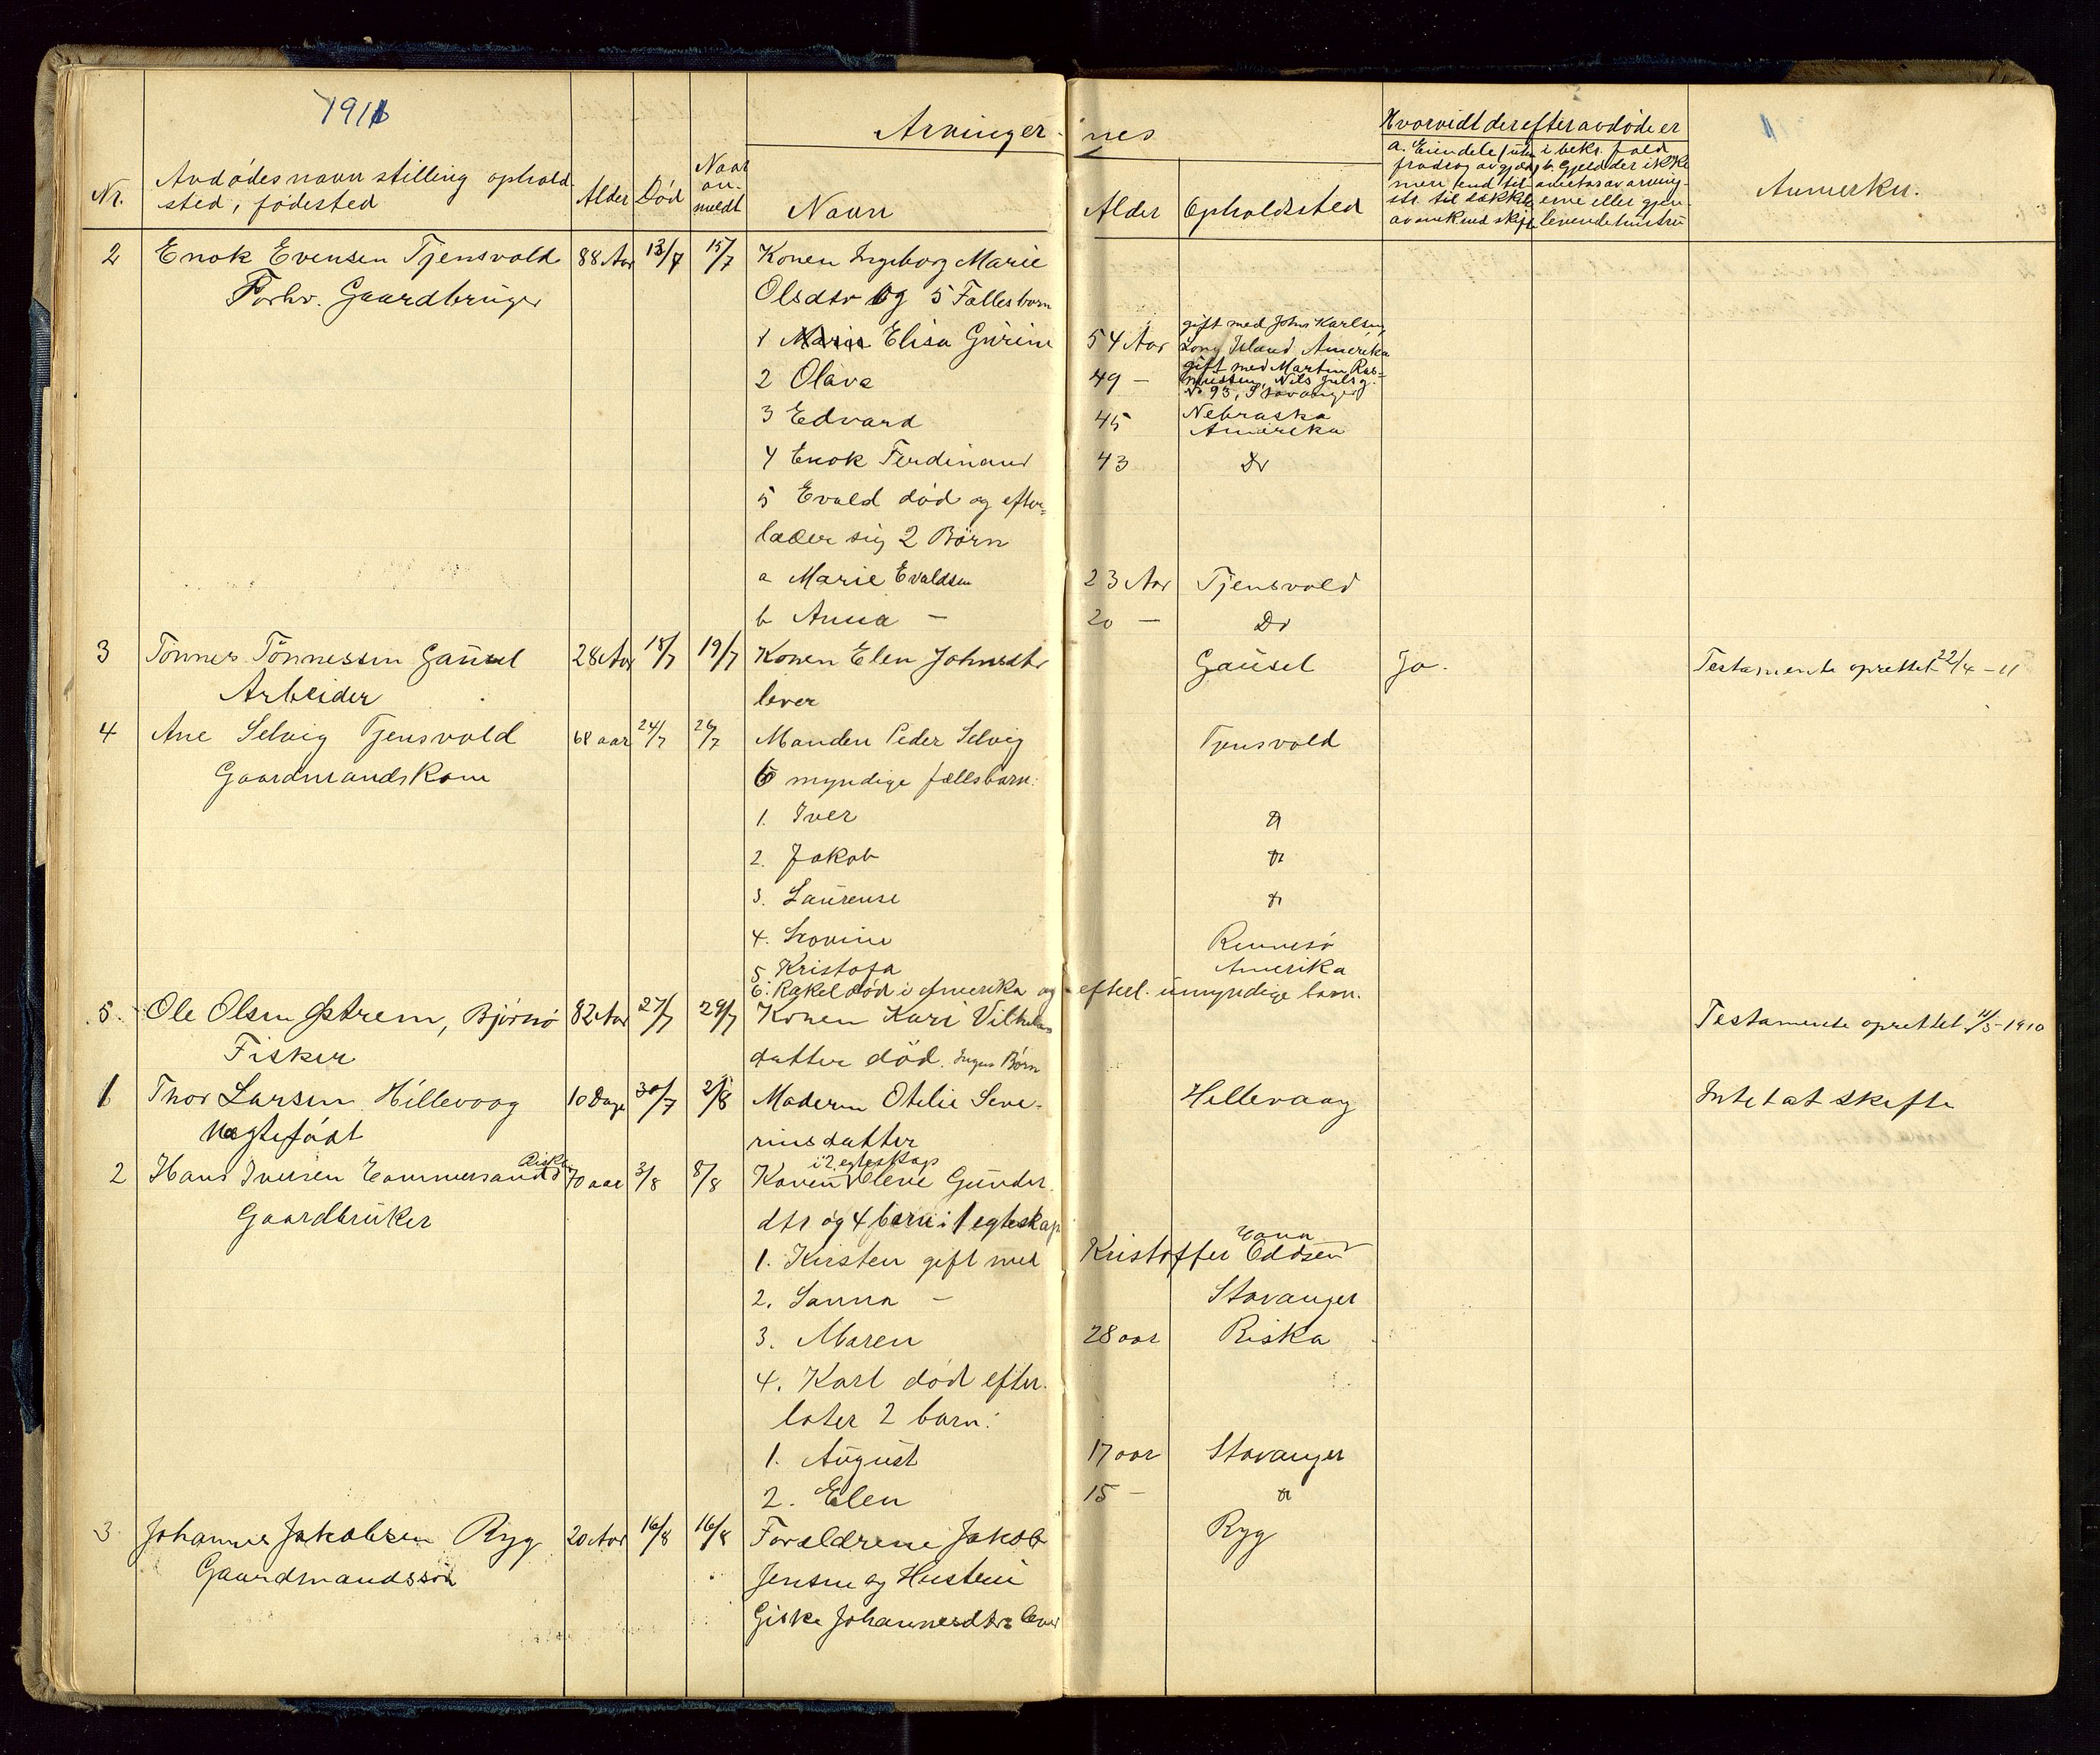 1911
Arvinger
nes
Hvorvidt der efter avdøde er
Nr.
Avdødes navn stilling ophold-
sted, fødested
Alder
Død
Naar
an-
meldt
Navn
Alder
Opholdsted
a. Eiendele
i bekr. fald
b. Gjeld der ikke
Anmerkn.
2 Enok Evensen Tjensvold 88 Aar 13/7 15/7 Konen Ingeborg Marie
Forhv. Gaardbruger Olsdtr og 5 Fællesbørn
1 Elisa Gurine 54 Aar gift med John Karlsen,
Long Island Amerika
2 Olava 49 — gift med Martin Ras-
mussen, Nils Juls g.
No 93, Stavanger
3 Edvard 45 Nebraska
Amerika
4 Enok Ferdinand 43 Do
5 Evald død og efter-
lader sig 2 Børn
a Marie Evaldsen 23 Aar Tjensvold
b Anna — 20 — Do
3 Tønnes Tønnessen Gausel 28 Aar 18/7 19/7 Konen Elen Johnsdtr Gausel Ja. Testamente oprettet 22/4 - 11
Arbeider lever
4 Ane Selvig Tjensvold 68 aar 24/7 26/7 Manden Peder Selvig Tjensvold
Gaardmandskone 6 myndige fællsbarn.
1. Iver do
2. Jakob do
3. Laurense do
4. Lovine Rennesö
5 Kristofa Amerika
6. Rakel død i Amerika og efterl. umyndige barn.
5. Ole Olsen Østrem, Bjørnø 82 Aar 27/7 29/7 Konen Kari Vilhelms Testamente oprettet 11/5-1910
Fisker datter død. Ingen Børn
1 Thor Larsen Hillevaag 10 Dage 30/7 2/8 Moderen Otelie Seve- Hillevaag Intet at skifte
Uegtefødt rinsdatter
Riska
i 2 egteskap
2 Hans Iversen 70 aar 3/8 8/8 Konen Olene Gunder
Gaardbruker dtr og 4 børn i 1 egteskap
1. Kirsten gift med Kristoffer Eddsen
2. Sanna — Stavanger
3. Maren 28 aar Riska
4. Karl død efter-
later 2 barn:
1. August 17 aar Stavanger
2. Elen 15 — do
3 Johannes Jakobsen Ryg 20 Aar 16/8 16/8 Forældrene Jakob Ryg
Gaardmandssøn Jensen og Hustru
Giske Johannesdtr lever